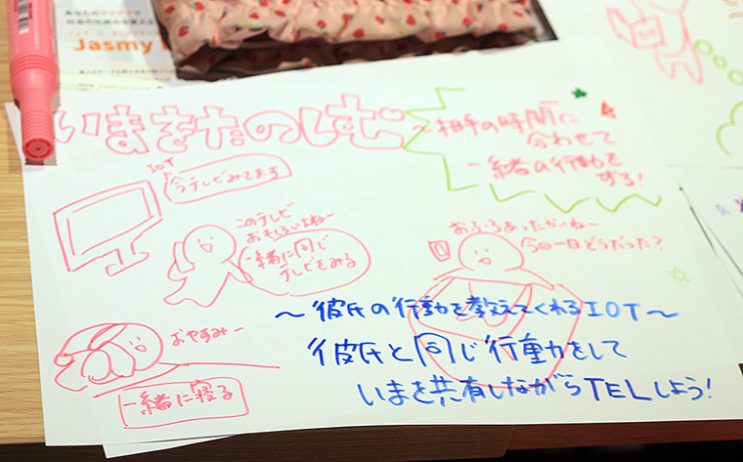 Jasmy
いまきたのしむ
〜相手の時間に
合わせて
一緒の行動を
する!
IOT
今テレビみてます
このテレビ
おもしろいよねー
一緒に同じ
テレビをみる
おふろあったかいねー
今日一日どうだった?
おやすみー
一緒に寝る
〜彼氏の行動を教えてくれるIOT〜
彼氏と同じ行動をして
いまを共有しながらTELしよう!